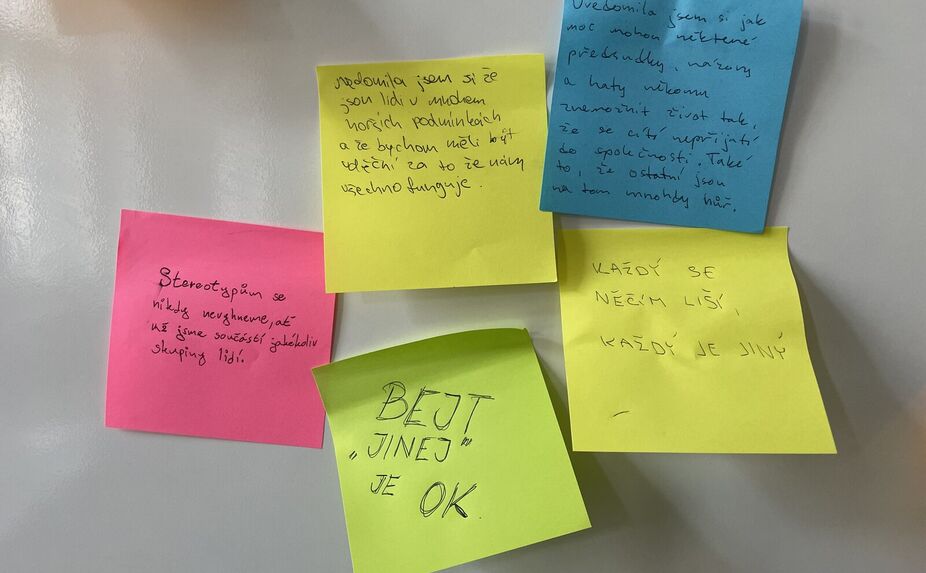 Uvědomila jsem si jak
moc mohou některé
předsudky, názory
a haty někomu
znemožnit život tak,
že se cítí nepřijatí
do společnosti. Také
to, že ostatní jsou
na tom mnohdy hůř.
jsem si že
jsou lidi v mnohem
horších podmínkách
a že bychom měli být
vděční za to že nám
všechno funguje.
Stereotypům se
nikdy nevyhneme, ať
už jsme součástí jakékoliv
skupiny lidí.
KAŽDÝ SE
NĚČÍM LIŠÍ,
KAŽDÝ JE JINÝ
BEJT
„JINEJ"
JE OK.